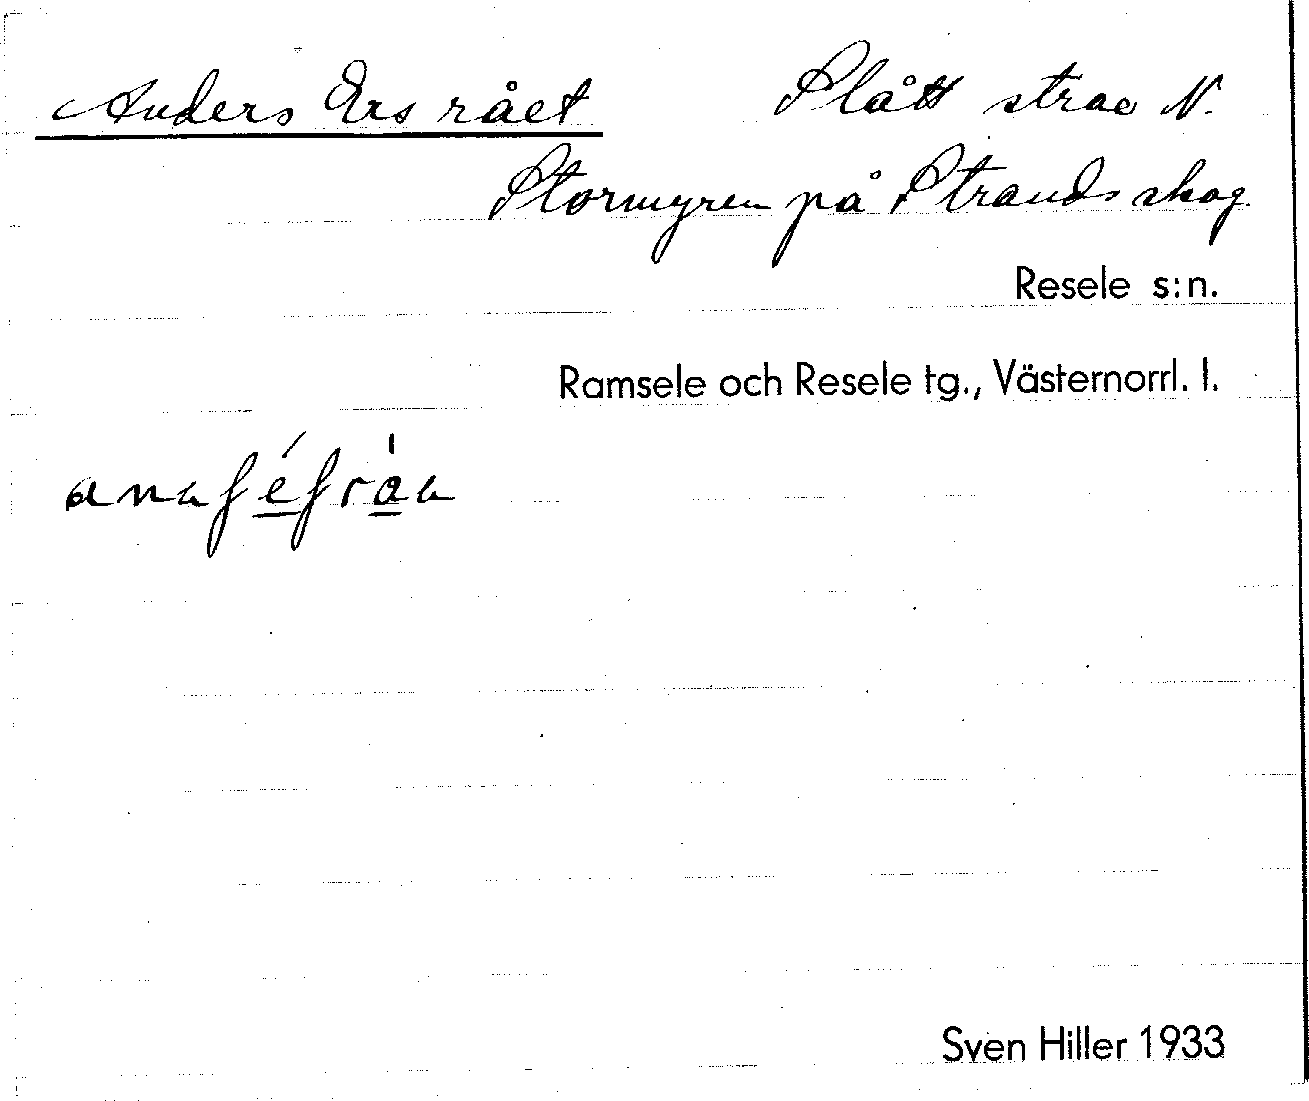 Anders Ers rået Slått strax N.
Stormyren på Strands skog.
Resele s:n.
Ramsele och Resele tg., Västernorrl. l.
Sven Hiller 1933